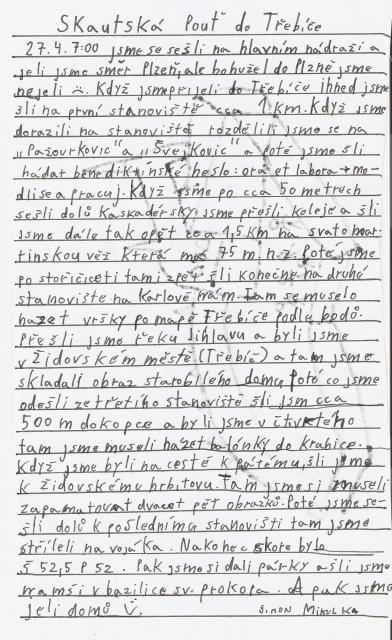 Skautská Pouť do Třebíče
27.4. 7:00 jsme se sešli na hlavním nádraží a
jeli jsme směr Plzeň, ale bohužel do Plzně jsme
nejeli. Když jsme přijeli do Třebíče ihned jsme
šli na první stanoviště cca 1 km. Když jsme
dorazili na stanoviště rozdělili jsme se na
„Pažourkovic" a „Švejkovic" a poté jsme šli
hádat benediktinské heslo: ora et labora → mo-
dli se a pracuj. Když jsme po cca 50 metrech
sešli dolů kaskadérsky jsme přešli koleje a šli
jsme dále tak opět cca 1,5 km na svatomar-
tinskou věž která má 75 m.n.z. Poté jsme
po stočiceti tam i zpět šli konečně na druhá
stanoviště na Karlově nám. Tam se muselo
hazet vršky po mapě Třebíče podle bodo.
Přešli jsme řeku Jihlavu a byli jsme
v Židovském městě (Třebíč) a tam jsme
skladali obraz starobilého domu, Poté co jsme
odešli ze třetího stanoviště šli jsm cca
500 m do kopce a byli jsme v čtvrtého
tam jsme museli hazet balónky do krabice.
Když jsme byli na cestě k pátému, šli jsme
k židovskému hrbitovu. Tam jsme si museli
zapamatovat dvacet pět obrazků. Poté jsme se-
šli dolů k poslednímu stanovišti tam jsme
stříleli na vojáka. Nakonec skore bylo
Š 52,5 P 52. Pak jsme si dali párky a šli jsme
na mši v bazilice sv. prokopa. A pak jsme
jeli domů Ü. Šimon Mikulka